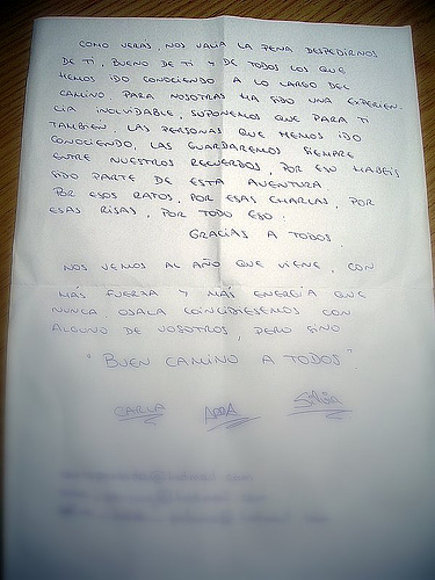 COMO VERÁS, NOS VALÍA LA PENA DESPEDIRNOS
DE TI, BUENO DE TI Y DE TODOS LOS QUE
HEMOS IDO CONOCIENDO A LO LARGO DEL
CAMINO. PARA NOSOTRAS HA SIDO UNA EXPERIEN-
CIA INOLVIDABLE, SUPONEMOS QUE PARA TI
TAMBIÉN. LAS PERSONAS QUE HEMOS IDO
CONOCIENDO, LAS GUARDAREMOS SIEMPRE
ENTRE NUESTROS RECUERDOS, POR ESO HABÉIS
SIDO PARTE DE ESTA AVENTURA
POR ESOS RATOS, POR ESAS CHARLAS, POR
ESAS RISAS, POR TODO ESO.
GRACIAS A TODOS.
NOS VEMOS AL AÑO QUE VIENE, CON
MÁS FUERZA Y MÁS ENERGÍA QUE
NUNCA. OJALA COINCIDIESEMOS CON
ALGUNO DE VOSOTROS, PERO SINO
"BUEN CAMINO A TODOS".
CARLA Silvia